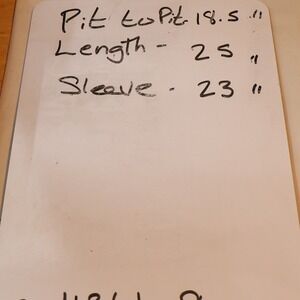 Pit to Pit 18.5 "
Length - 25 "
Sleeve - 23 "